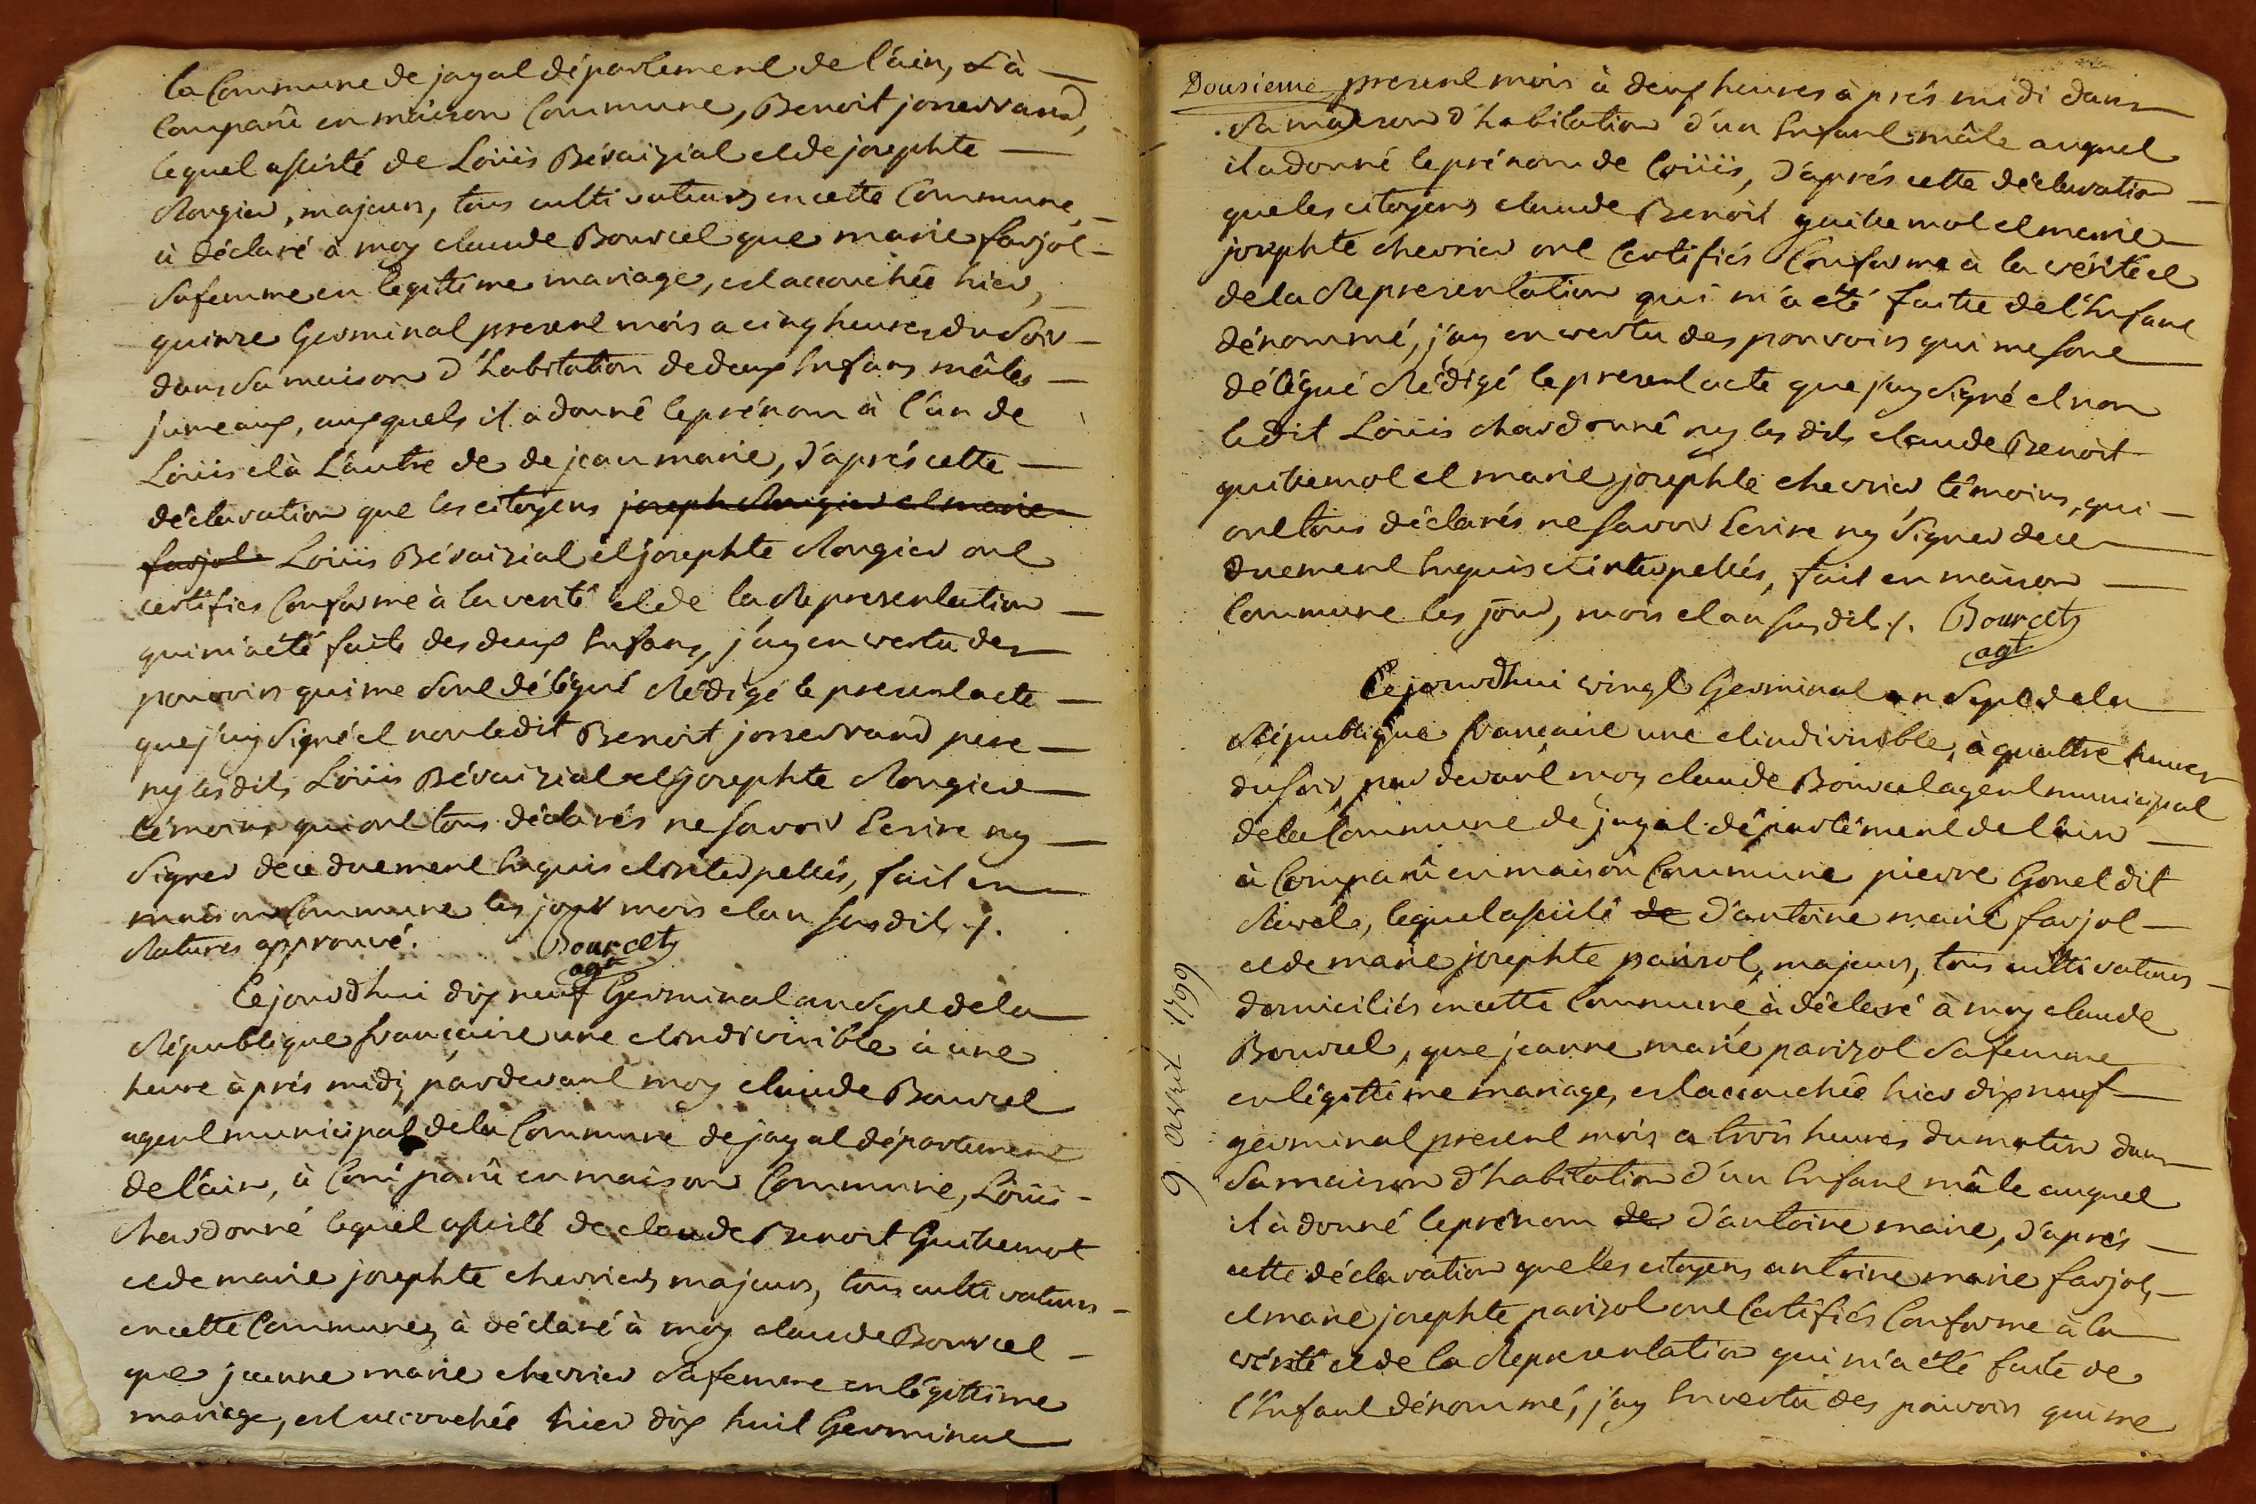 la Commune de jayat département de l'áin, à
Comparû en máison Commune, Benoit josserrand,
lequel assisté de Loüis Bévaizial et de josephte
Rongier, majeurs, tous cultivateurs en cette Commune,
à déclaré à moy claude Bourcel que marie farjot
sa femme en legitime mariage, est accouchée hier,
quinze Germinal present mois a cinq heures du Soir
dans Sa maison d'habitation de deux Enfans mâles
jumeaux, auxquels il a donné le prénom à l'un de
Loüis et à l'autre de de jean marie, d'aprés cette
déclaration que les citoyens joseph Rongier et marie
farjot Loüis Bévaizial et josephte Rongier ont
certifies Conforme à la verité et de la Representation
qui m'a été faite des deux Enfans, j'ay en vertu des
pouvoirs qui me Sont délégué Rédigé le present acte
que j'ay Signé et non ledit Benoit josserrand pere
ny les dits Loüis Bévaizial et josephte Rongier
témoins qui ont tous déclarés ne Savoir Ecrire ny
Signer de ce duement Enquis et interpellés, fait en
maison Commune les jour mois et an Susdit ./.
Ratures approuvé. Bourcet
agt
Cejourdhui dix neuf Germinal an Sept de la
République française une et indivisible à une
heure à prés midy pardevant moy claude Bourcel
agent municipal de la Commune de jayat département
de l'áin, à Comparû en maison Commune, Loüis
chardonné lequel assisté de claude Benoit Guillemot
et de marie josephte chevrier majeurs, tous cultivateurs
en cette Commune, à déclaré à moy claude Bourcel
que jeanne marie chevrier Sa femme en légitime
mariage, est accouchée hier dix huit Germinal
Dousieme present mois à deux heures à prés midi dans
Sa maison d'habitation d'un Enfant mâle auquel
il a donné le prénom de Loüis, d'aprés cette déclaration
que les citoyens claude Benoit guillemot et marie
josephte chevrier ont Certifiés Conforme à la vérité et
de la Representation qui m'a été faite de l'Enfant
dénommé, j'ay en vertu des pouvoirs qui me Sont
délégué Rédigé le present acte que j'ay Signé et non
ledit Loüis chardonné ny les dits claude Benoit
guillemot et marie josephte chevrier témoins, qui
ont tous déclarés ne Savoir Ecrire ny Signer de ce
duement Enquis et interpellés, fait en maison
Commune les jour, mois et an Susdit ./. Bourcet
agt
Cejourdhui vingt Germinal an Sept de la
République française une et indivisible, à quattre heures
du Soir, par devant moy claude Bourcel agent municipal
de la Commune de jayat département de l'áin
à Comparû en maison Commune pierre Gonet dit
Rivel, lequel assisté de d'antoine marie farjot
et de marie josephte parizot, majeurs, tous cultivateurs
domiciliés en cette Commune à déclaré à moy claude
Bourcel, que jeanne marie parizot Sa femme
en légittime mariage, est accouchée hier dix neuf
germinal present mois a trois heures du matin dans
Sa maison d'habitation d'un Enfant mâle auquel
il à donné le prénom de d'antoine marie, d'aprés
cette déclaration que les citoyens antoine marie farjot,
et marie josephte parizot ont Certifiés Conforme à la
vérité et de la Representation qui m'a été faite de
l'Enfant dénommé, j'ay En vertu des pouvoirs qui me
9 avril 1799